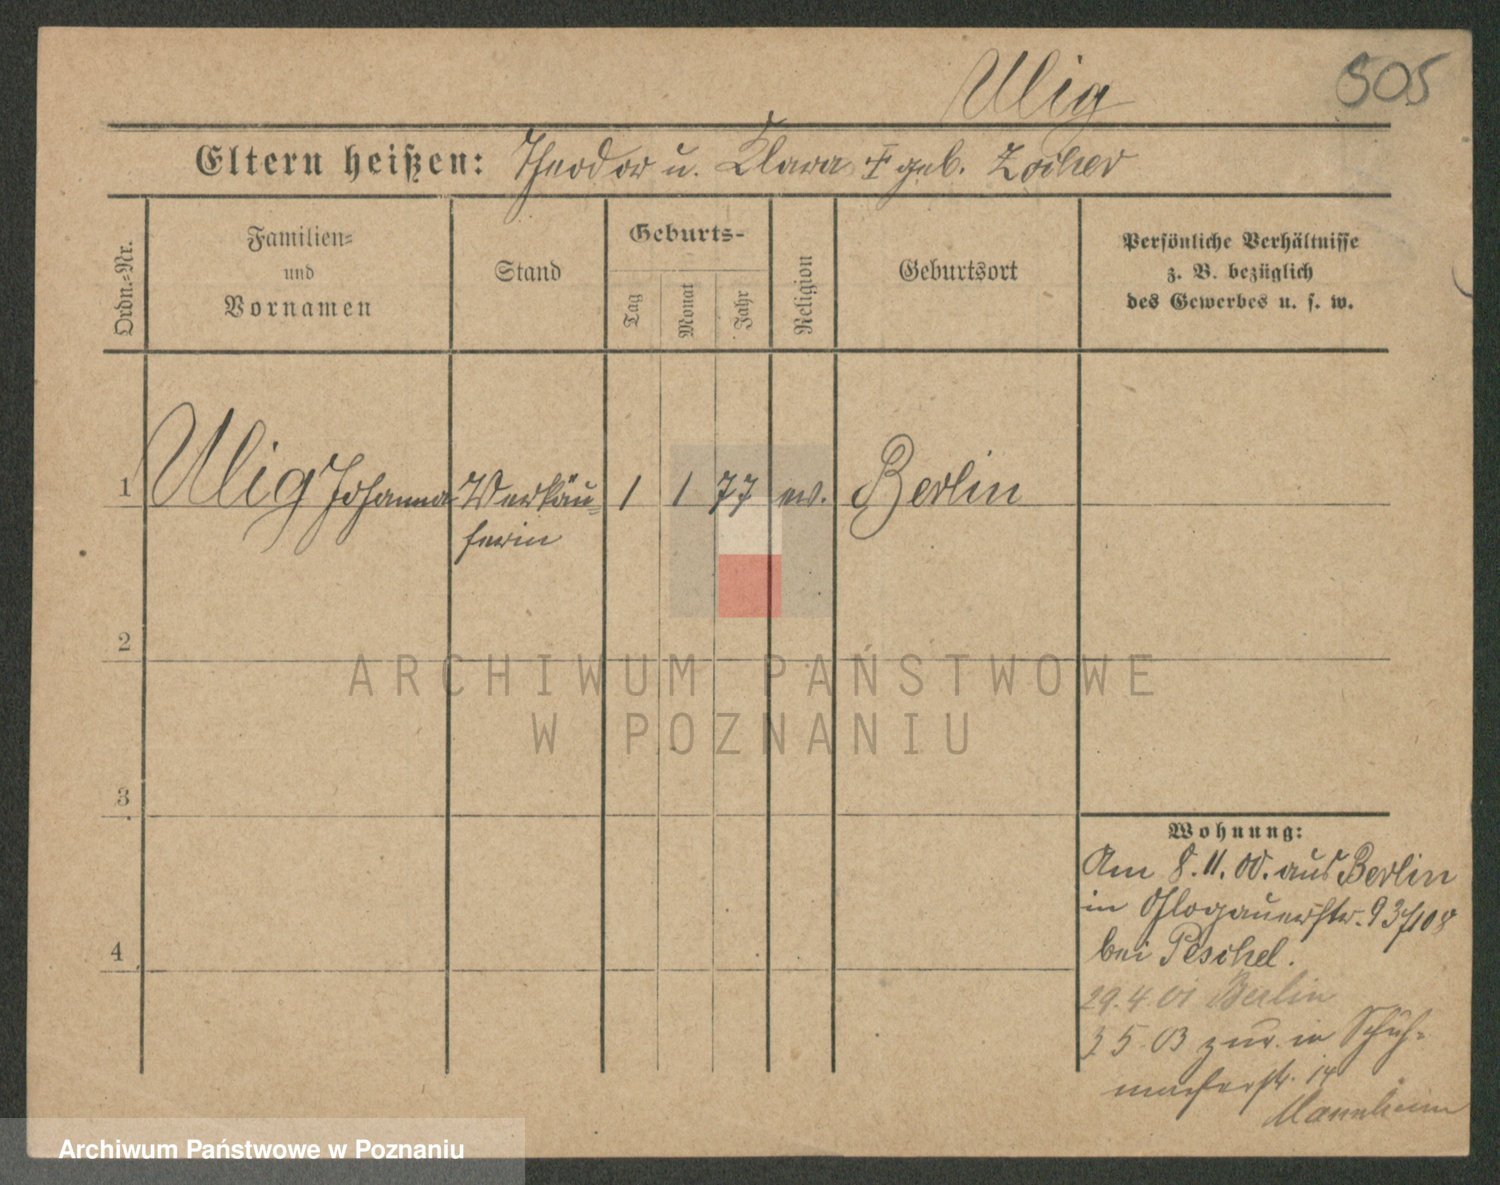 Ulig
505
Eltern heißen: Theodor u. Klara † geb. Zocher
Ordn.-Nr.
Familien-
und
Vornamen
Stand
Geburts-
Tag
Monat
Jahr
Religion
Geburtsort
Persönliche Verhältnisse
z. B. bezüglich
des Gewerbes u. s. w.
1 Ulig Johanna Verkäu- 1 1 77 ev. Berlin
ferin
2
ARCHIWUM PAŃSTWOWE
W POZNANIU
3
Wohnung:
Am 8.11.00. aus Berlin
in Glogauerstr. 93/108
bei Peschel.
4
29.4.01 Berlin
3 5 03 zur. in Schuh-
macherstr. 14
Mannheim
Archiwum Państwowe w Poznaniu